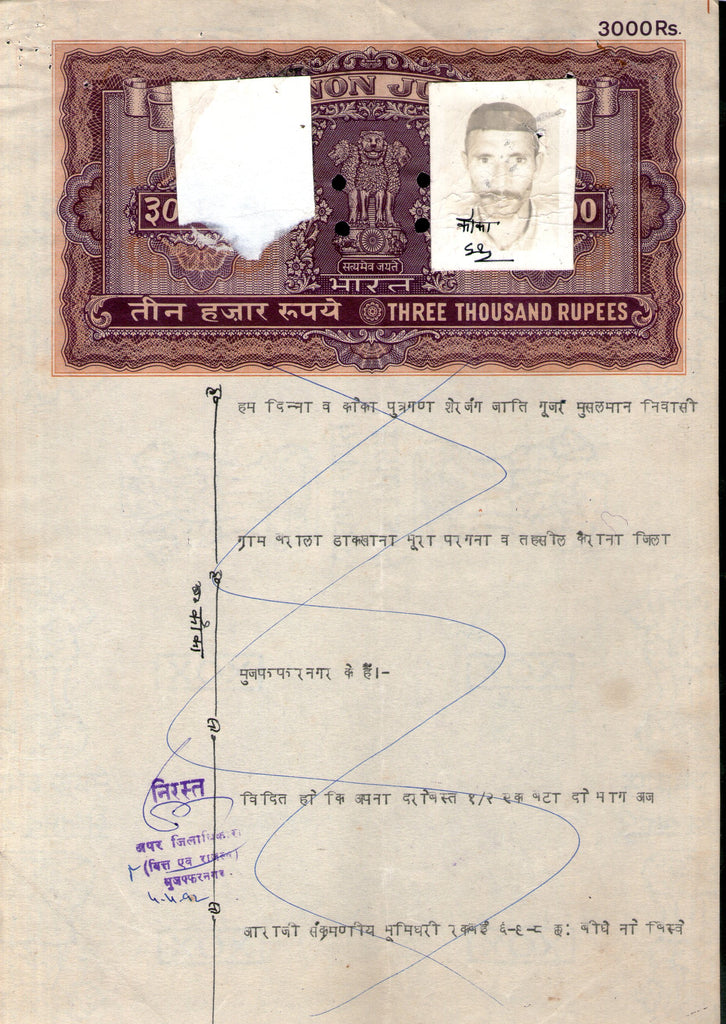 3000Rs.
NON JU
३०
00
सत्यमेव जयते
भारत
तीन हजार रुपये THREE THOUSAND RUPEES
काका
हम दिन्ना व काका पुत्रगण शेरजंग जाति गूजर मुसलमान निवासी
ग्राम बराला डाकखाना भूरा परगना व तहसील कैराना जिला
मुजफ्फरनगर के हैं।-
विदित हो कि अपना दरोबस्त १/२ एक बटा दो भाग अज
आराजी संक्रमणीय भूमिधरी रकबई ६-९-८ छ: बीघे नौ बिस्वे
काका
निरस्त
अपर जिलाधिका
(वित्त एवं राजस्व)
मुजफ्फरनगर